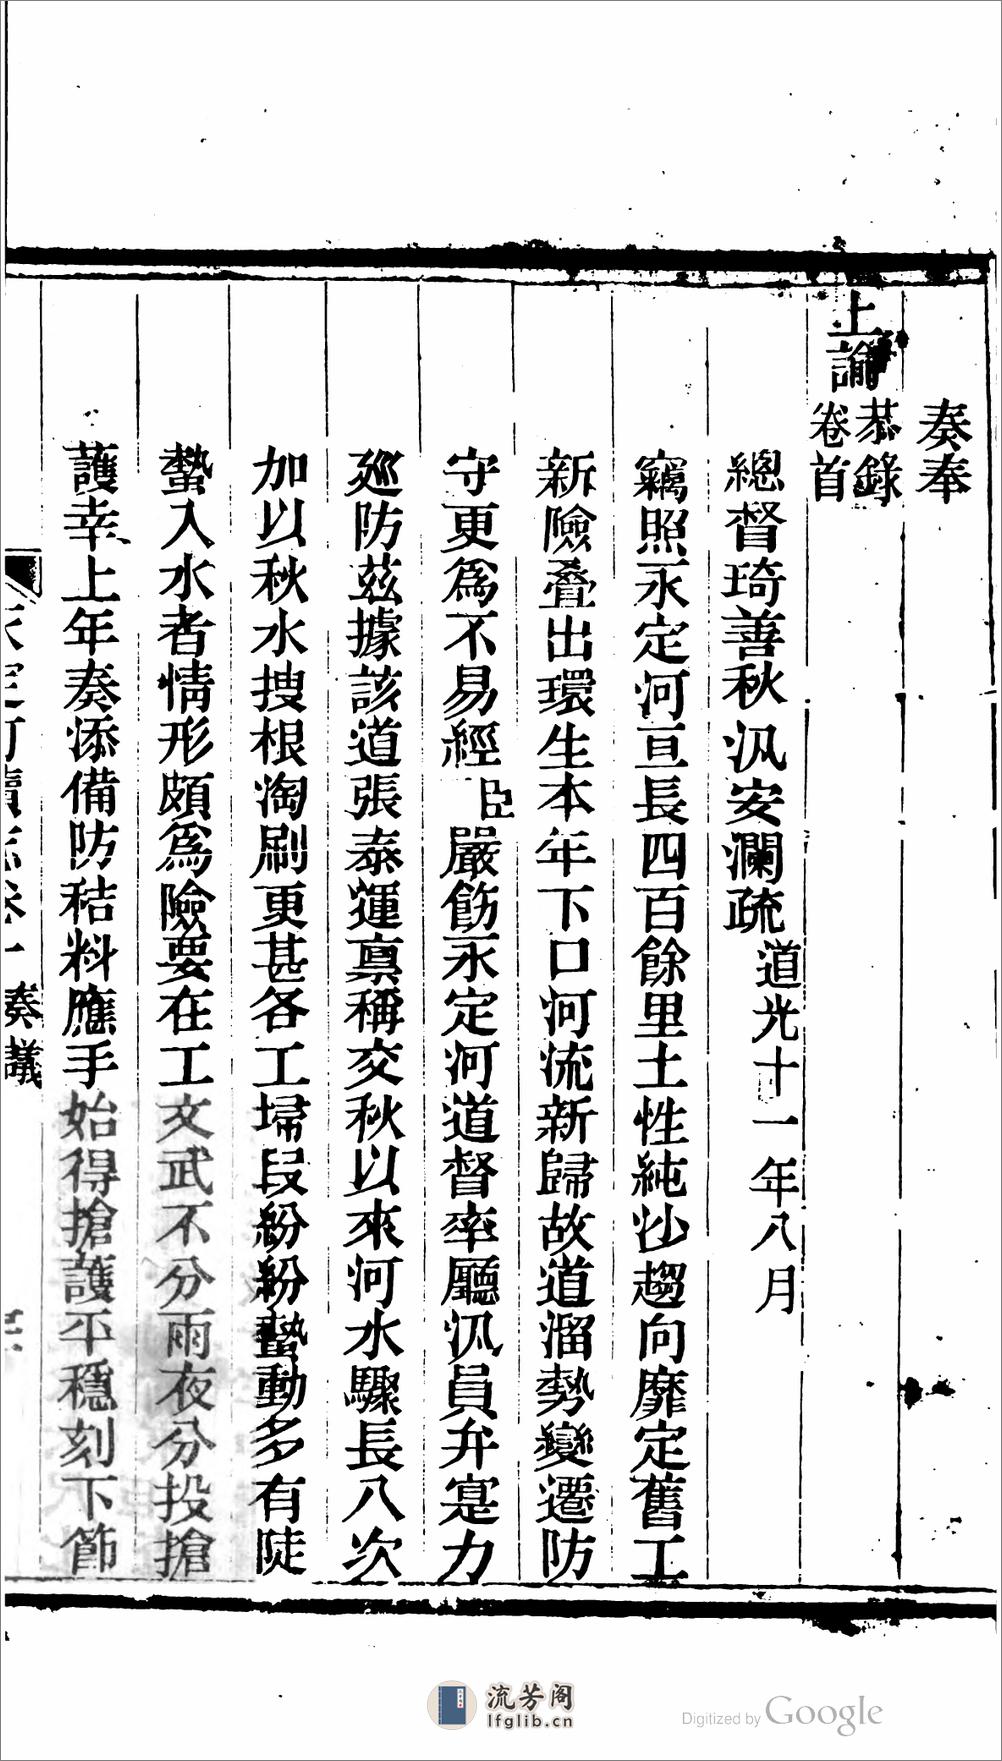 奏奉
上諭恭錄卷首
總督琦善秋汛安瀾疏道光十一年八月
竊照永定河亘長四百餘里土性純沙趨向靡定舊工
新險叠出環生本年下口河流新歸故道溜勢變遷防
守更爲不易經臣嚴飭永定河道督率廳汛員弁寔力
廵防茲據該道張泰運禀稱交秋以來河水驟長八次
加以秋水搜根淘刷更甚各工埽段紛紛蟄動多有陡
蟄入水者情形頗爲險要在工文武不分雨夜分投搶
護幸上年奏添備防秸料應手始得搶護平穩刻下節
永定河續志卷十 奏議
流芳阁
lfglib.cn
Digitized by Google